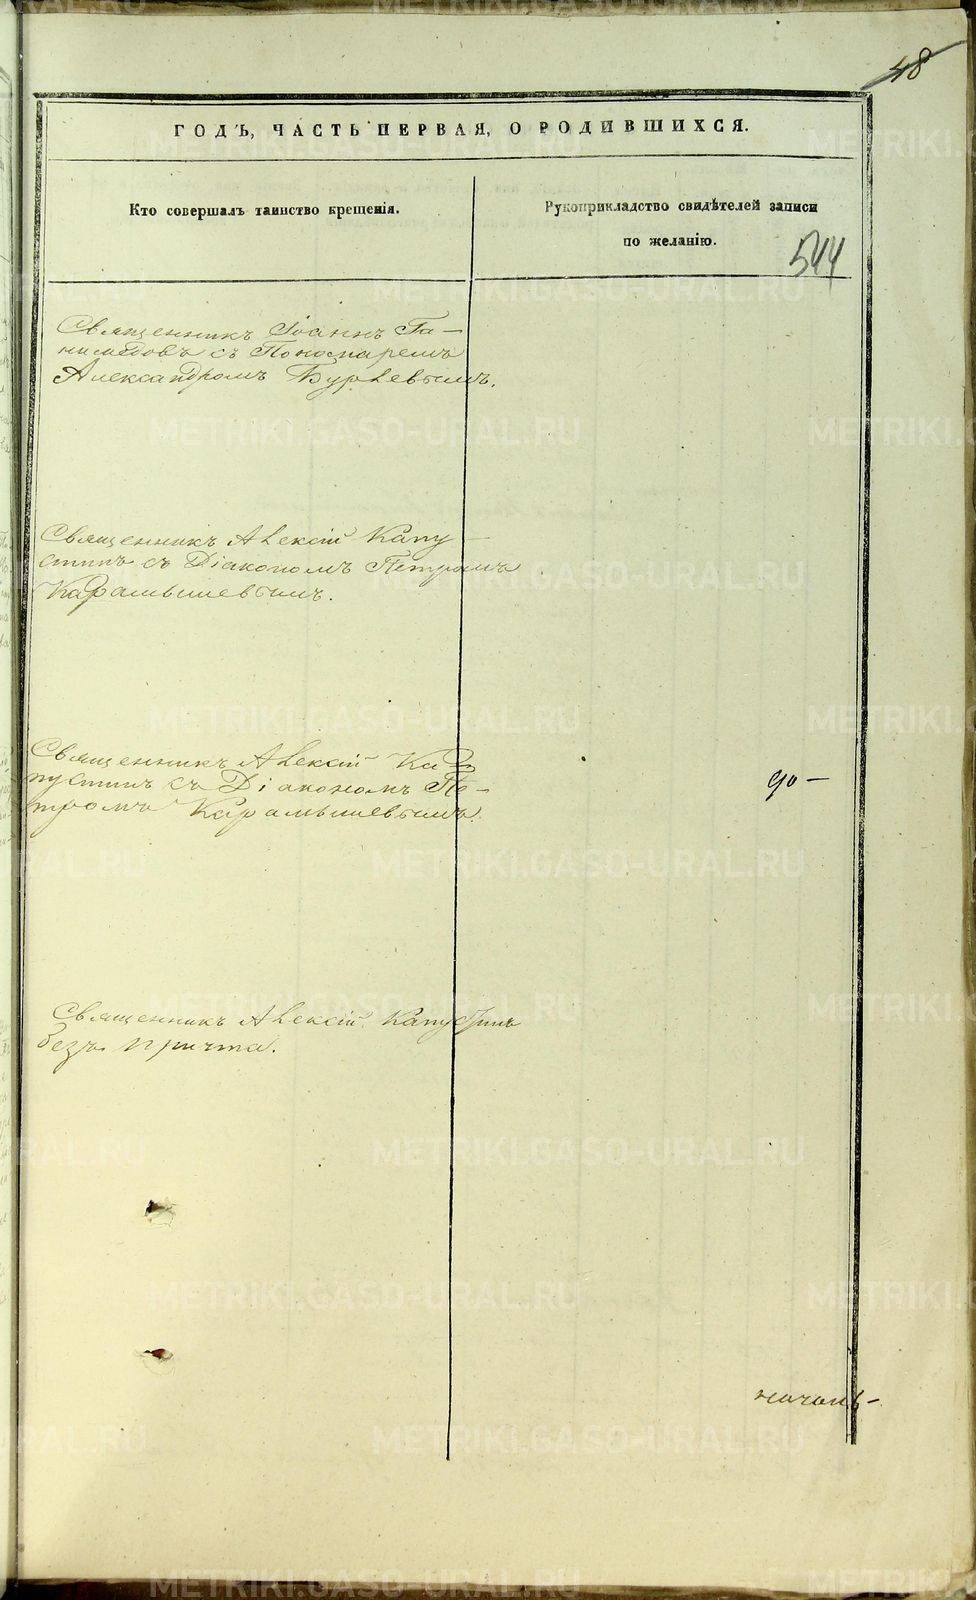 48
ГОДЪ, ЧАСТЬ ПЕРВАЯ, О РОДИВШИХСЯ.
Кто совершалъ таинство крещенія.
Рукоприкладство свидѣтелей записи
по желанію.
544
Священникъ Іоаннъ Га-
нимедовъ съ Пономаремъ
Александромъ Бурлевымъ.
Священникъ Алексій Капу
стинъ съ Діакономъ Петромъ
Карамышевымъ.
Священникъ Алексій Ка
пустинъ съ Діакономъ Пе-
тромъ Карамышевымъ.
до-
Священникъ Алексій Капустинъ
безъ причта.
METRIKI.GASO-URAL.RU